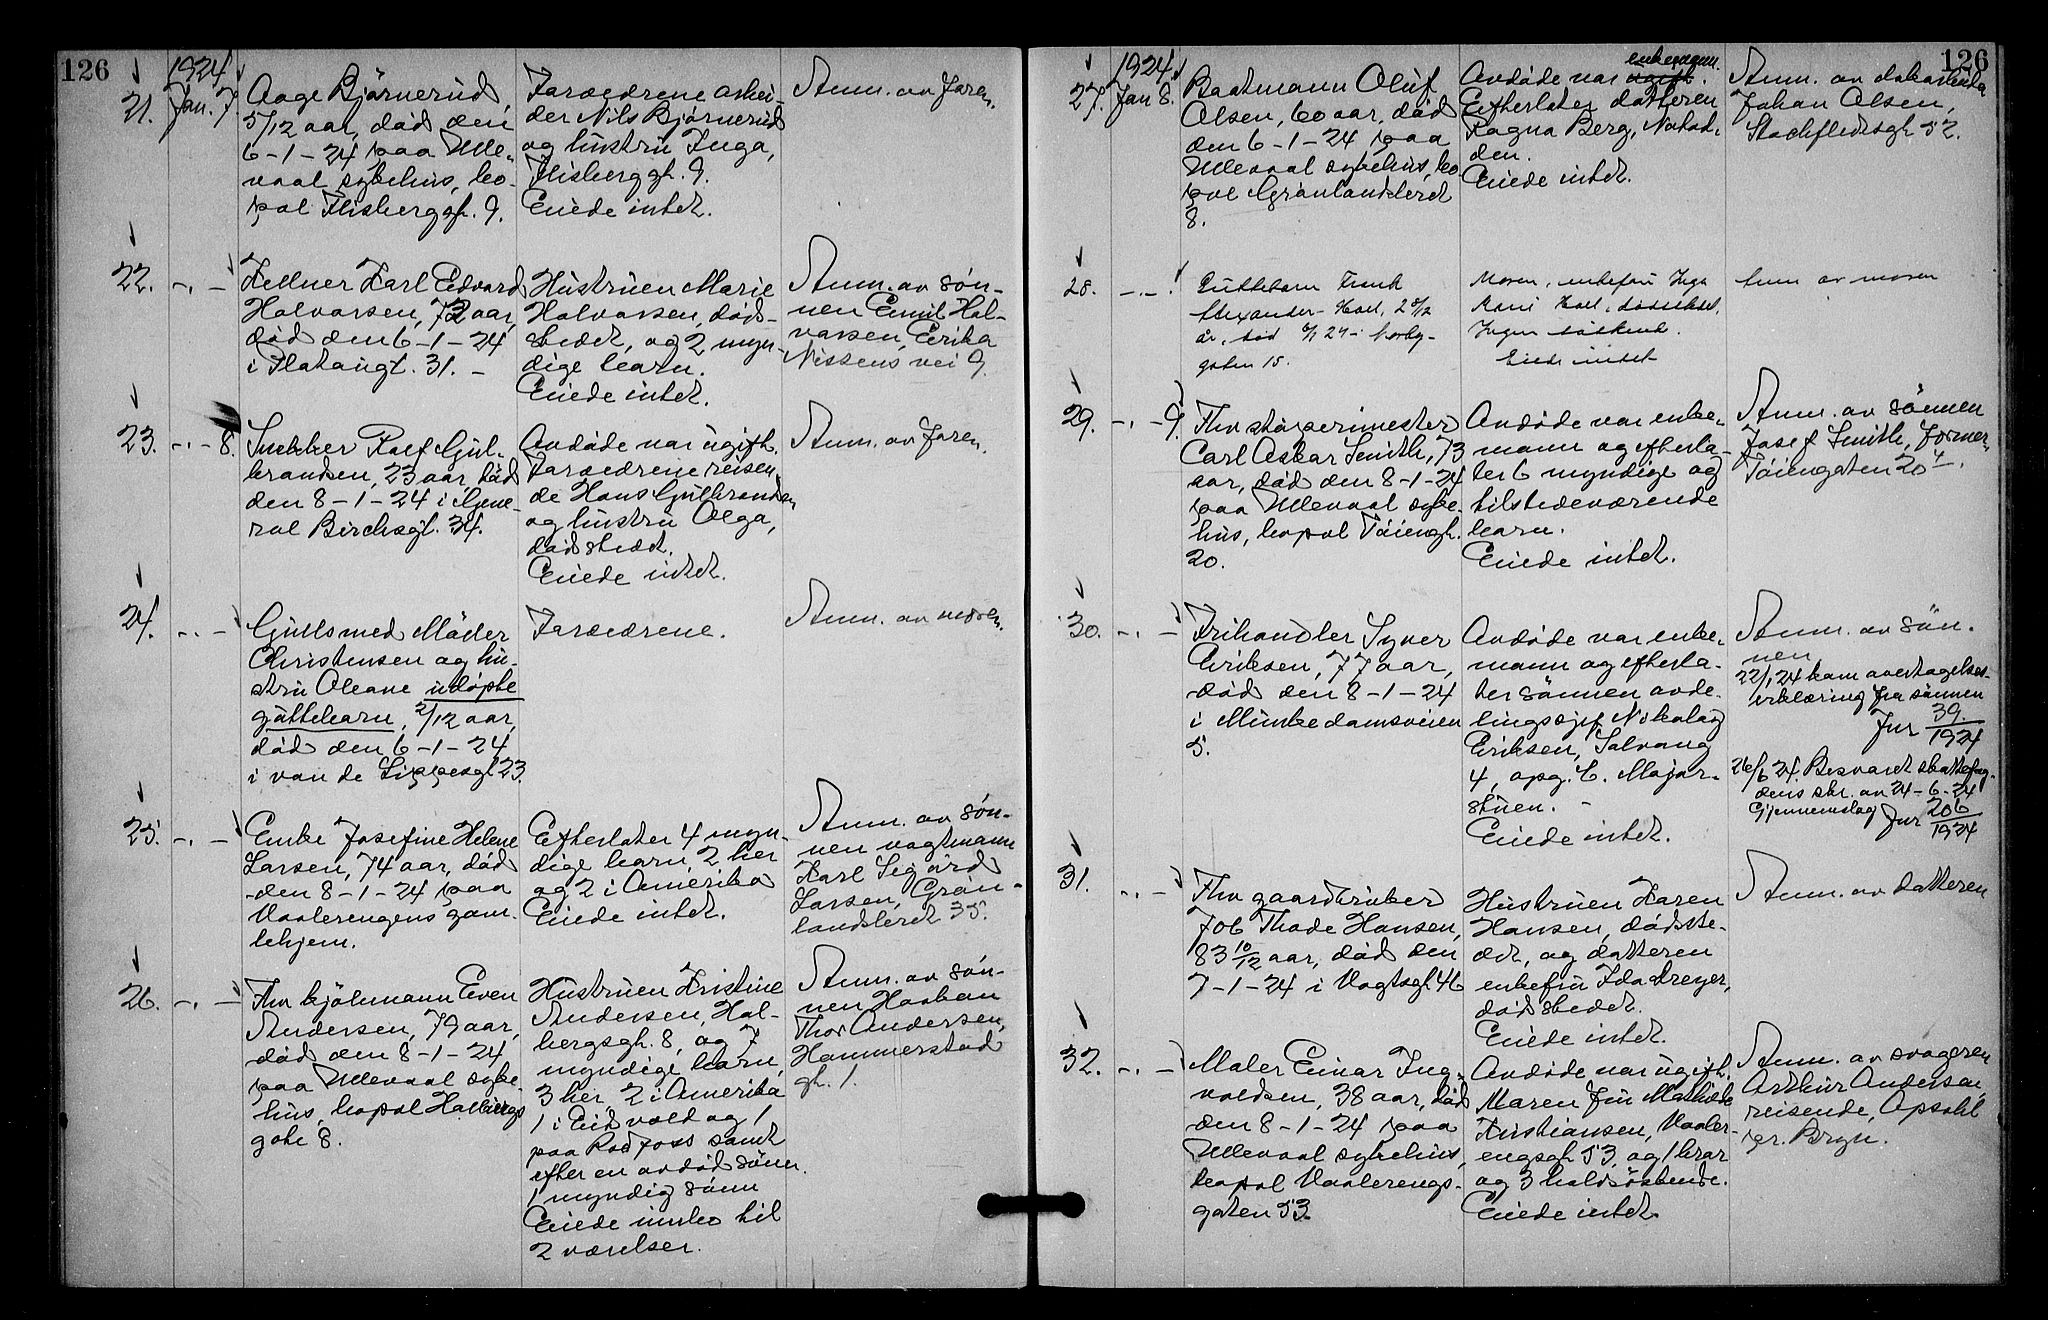 126
1924
21. Jan. 7.
Aage Bjørnerud,
5/12 aar, død den
6-1-24 paa Ulle-
vaal sykehus, bo-
pæl Flisberggt. 9.
Forældrene arbei-
der Nils Bjørnerud
og hustru Inga,
Flisberggt. 9.
Eiede intet.
Anm. av faren.
22. -.-
Kellner Karl Edvard
Halvorsen, 72 aar,
død den 6-1-24
i Platougt. 31. -
Hustruen Marie
Halvorsen, døds-
stedet, og 2 myn-
dige barn.
Eiede intet.
Anm. av søn-
nen Emil Hal-
vorsen, Erika
Nissens vei 9.
23. -.- 8.
Snekker Rolf Gul-
brandsen, 23 aar, død
den 8-1-24 i Gene-
ral Birchsgt. 34.
Avdøde var ugift.
Forældrene reisen-
de Hans Gulbrandsen
og hustru Olga,
dødsstedet.
Eiede intet.
Anm. av faren.
24. -.-
Gullsmed Møller
Christensen og hu-
stru Oleane udøpte
guttebarn, 2/12 aar,
død den 6-1-24
i van de Lippesgt 23.
Forældrene.
Anm. av moren.
25. -.-
Enke Josefine Helene
Larsen, 74 aar, død
den 8-1-24 paa
Vaalerengens gam-
lehjem.
Efterlater 4 myn-
dige barn, 2 her
og 2 i Amerika
Eiede intet.
Anm. av søn-
nen vogtmann
Karl Sigurd
Larsen, Grøn-
landsleret 35.
26. -.-
Fhv kjølmann Even
Andersen, 79 aar,
død den 8-1-24
paa Ullevaal syke-
hus, bopæl Holbergs
gate 8.
Hustruen Kristine
Andersen, Hol-
bergsgt. 8, og 7
myndige barn,
3 her 2 i Amerika
1 i Eidsvold og 1
paa Rodfoss samt
efter en avdød sønn
1 myndig sønn
Eiede innbo til
2 værelser.
Anm. av søn-
nen Haakon
Thor Andersen,
Hammerstad
gt. 1.
126
1924
27. Jan 8.
Baatmann Oluf
Olsen, 60 aar, død
den 6-1-24 paa
Ullevaal sykehus, bo
pæl Grønlandsleret
8.
enkemann.
Avdøde var ugift.
Efterlater datteren
Ragna Berg, Notod-
den.
Eiede intet.
Anm. av
Johan Olsen,
Stockfledtsgt 52.
28. -.-
Guttebarn Frank
Alexander
år, død
gaten 15.
Moren, enkefru Inga
dødsstedet.
Ingen søskende.
Eiede intet
Anm av moren
29. -.- 9.
Fhv støperimester
Carl Oskar Smith, 73
aar, død den 8-1-24
paa Ullevaal syke-
hus, bopæl Tøiengt.
20.
Avdøde var enke-
mann og efterla-
ter 6 myndige og
tilstedeværende
barn.
Eiede intet.
Anm. av sønnen
Josef Smith, former,
Tøiengaten 20 4.
30. -.-
Frihandler Syver
Eriksen, 77 aar,
død den 8-1-24
i Munkedamsveien
5.
Avdøde var enke-
mann og efterla-
ter sønnen avde-
lingssjef Nikolay
Eriksen, Solvang
4, opg. C. Major-
stuen. -
Eiede intet.
Anm. av søn-
nen
22/1 24 kom overtagelses-
erklæring fra sønnen
Jnr 39/1924
26/6 24. Besvaret skattefog-
dens skr. av 24-6-24
Gjennemslag Jnr 206/1924
31. -.-
Fhv gaardbruker
Job Thode Hansen,
83 10/12 aar, død den
7-1-24 i Vogtsgt 46
Hustruen Karen
Hansen, dødsste-
det, og datteren
enkefru Ida Dreyer,
dødsstedet.
Eiede intet.
Anm. av datteren
32. -.-
Maler Einar Ing-
voldsen, 38 aar, død
den 8-1-24 paa
Ullevaal sykehus,
bopæl Vaalerengs-
gaten 53.
Avdøde var ugift.
Maren Mathilde
Kristiansen, Vaaler-
engsgt 53, og 1 bror
og 3 halvsøskende.
Eiede intet.
Anm. av svogeren
Arthur Andersen
reisende, Opsahl
pr. Bryn.